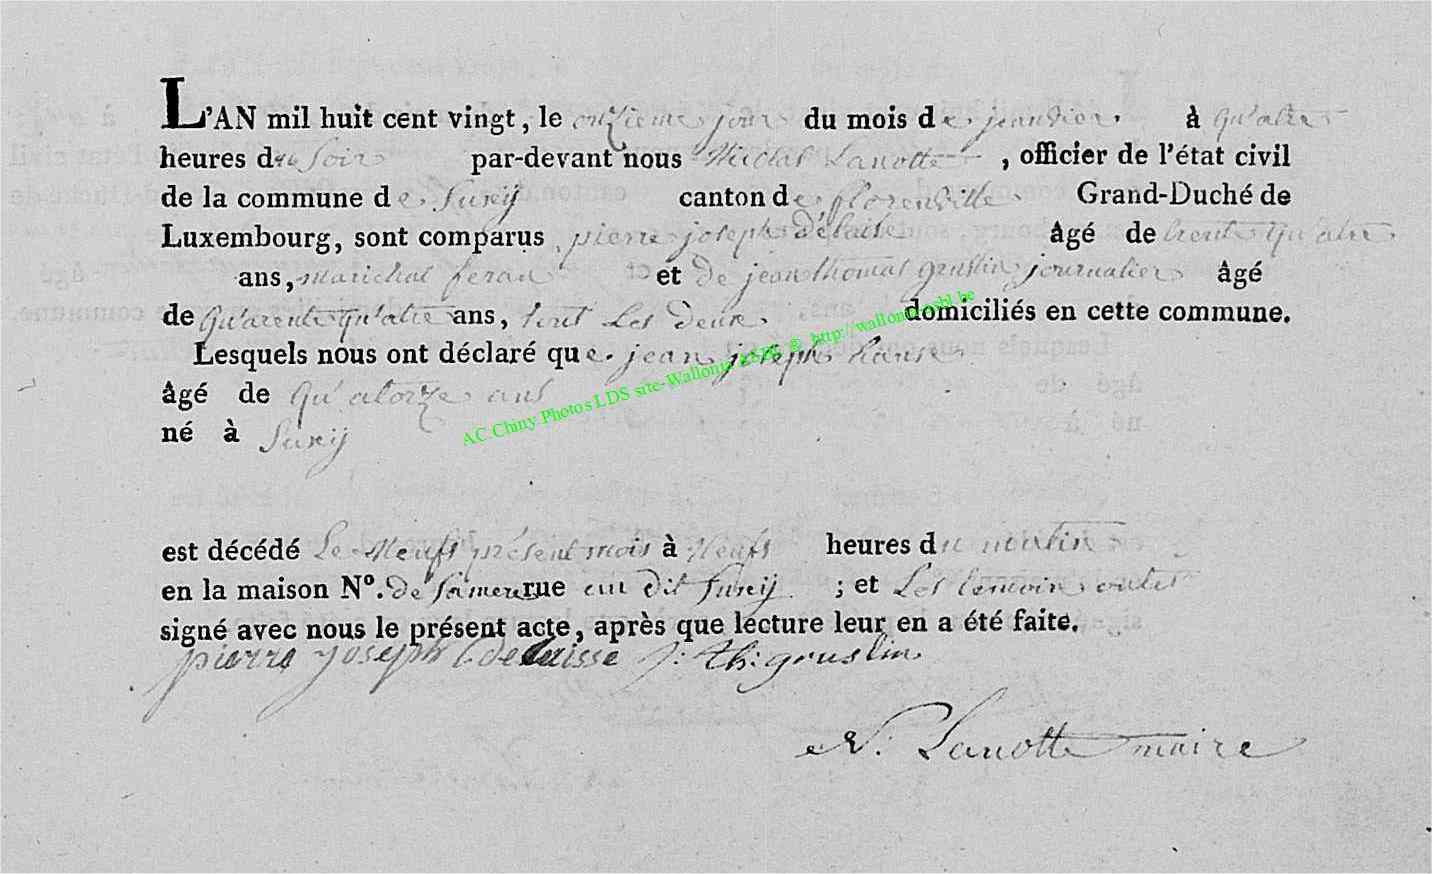 L'AN mil huit cent vingt, le onzieme jour du mois de jeanvier. à qu'atre
heures du soir par-devant nous Nicolas Lanotte, officier de l'état civil
de la commune de Suxij canton de florenville. Grand-Duché de
Luxembourg, sont comparus pierre joseph délaisse âgé de trente qu'atre
ans, marichal feran et de jean thomas gruslin journalier âgé
de qu'arente qu'atre ans, tout les deux. domiciliés en cette commune.
Lesquels nous ont déclaré que. jean joseph hanse
âgé de qu'atorze ans
né à Suxij
AC Chiny Photos LDS site-Wallonia ASBL @ http://wallonia-asbl.be
est décédé le Neufs présent mois à Neufs heures du matin
en la maison N°. de sa mere rue au dit Suxij ; et les temoin
signé avec nous le présent acte, après que lecture leur en a été faite.
pierre joseph delaisse j: th: gruslin
N. Lanotte maire